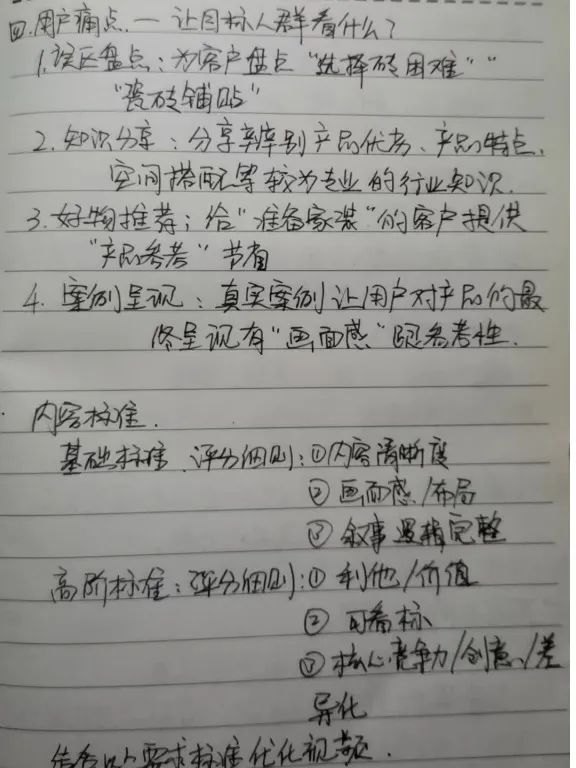 四.用户痛点.—让目标人群看什么?
1.误区盘点:为客户盘点"选择砖困难""
"瓷砖铺贴"
2.知识分享:分享辨别产品优劣、产品特点、
空间搭配等较为专业的行业知识.
3.好物推荐;给"准备家装"的客户提供
"产品参考"节省
4.案例呈现:真实案例让用户对产品的最
终呈现有"画面感"跟参考性.
内容标准.
基础标准.评分细则:①内容清晰度
②画面感/布局
③叙事逻辑完整
高阶标准:评分细则:①利他/价值
②可看标
③核心竞争力/创意/差
异化
结合以上要求标准优化视频.